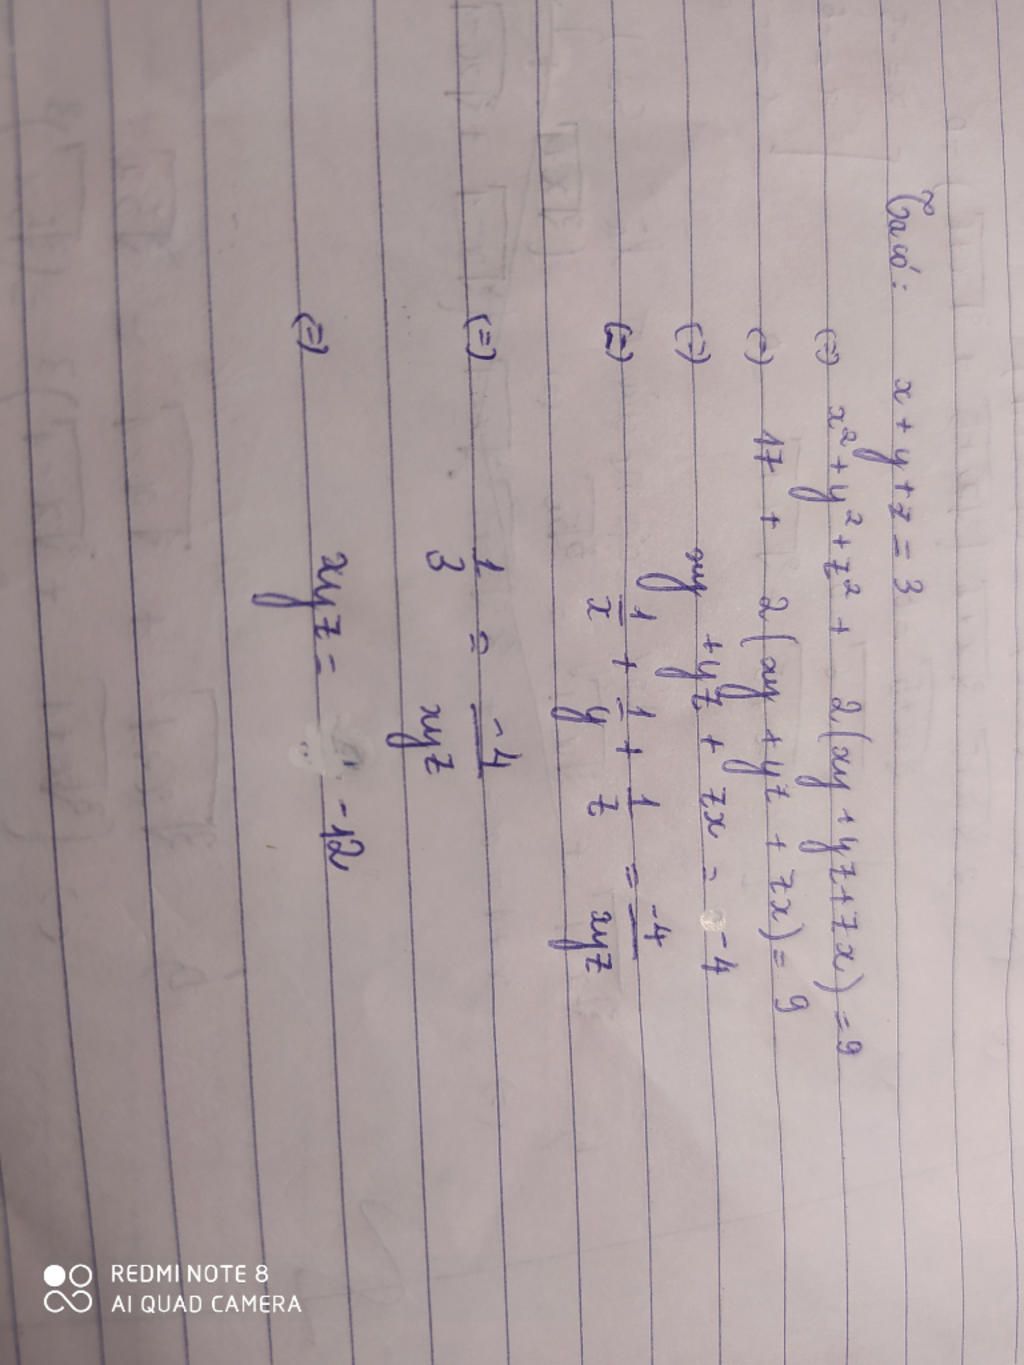 Ta có: x + y + z = 3
(=) x² + y² + z² + 2(xy + yz + zx) = 9
(=) 17 + 2(xy + yz + zx) = 9
(=) xy + yz + zx = -4
(=) 1/x + 1/y + 1/z = -4/xyz
(=) 1/3 = -4/xyz
(=) xyz = -12
REDMI NOTE 8
AI QUAD CAMERA